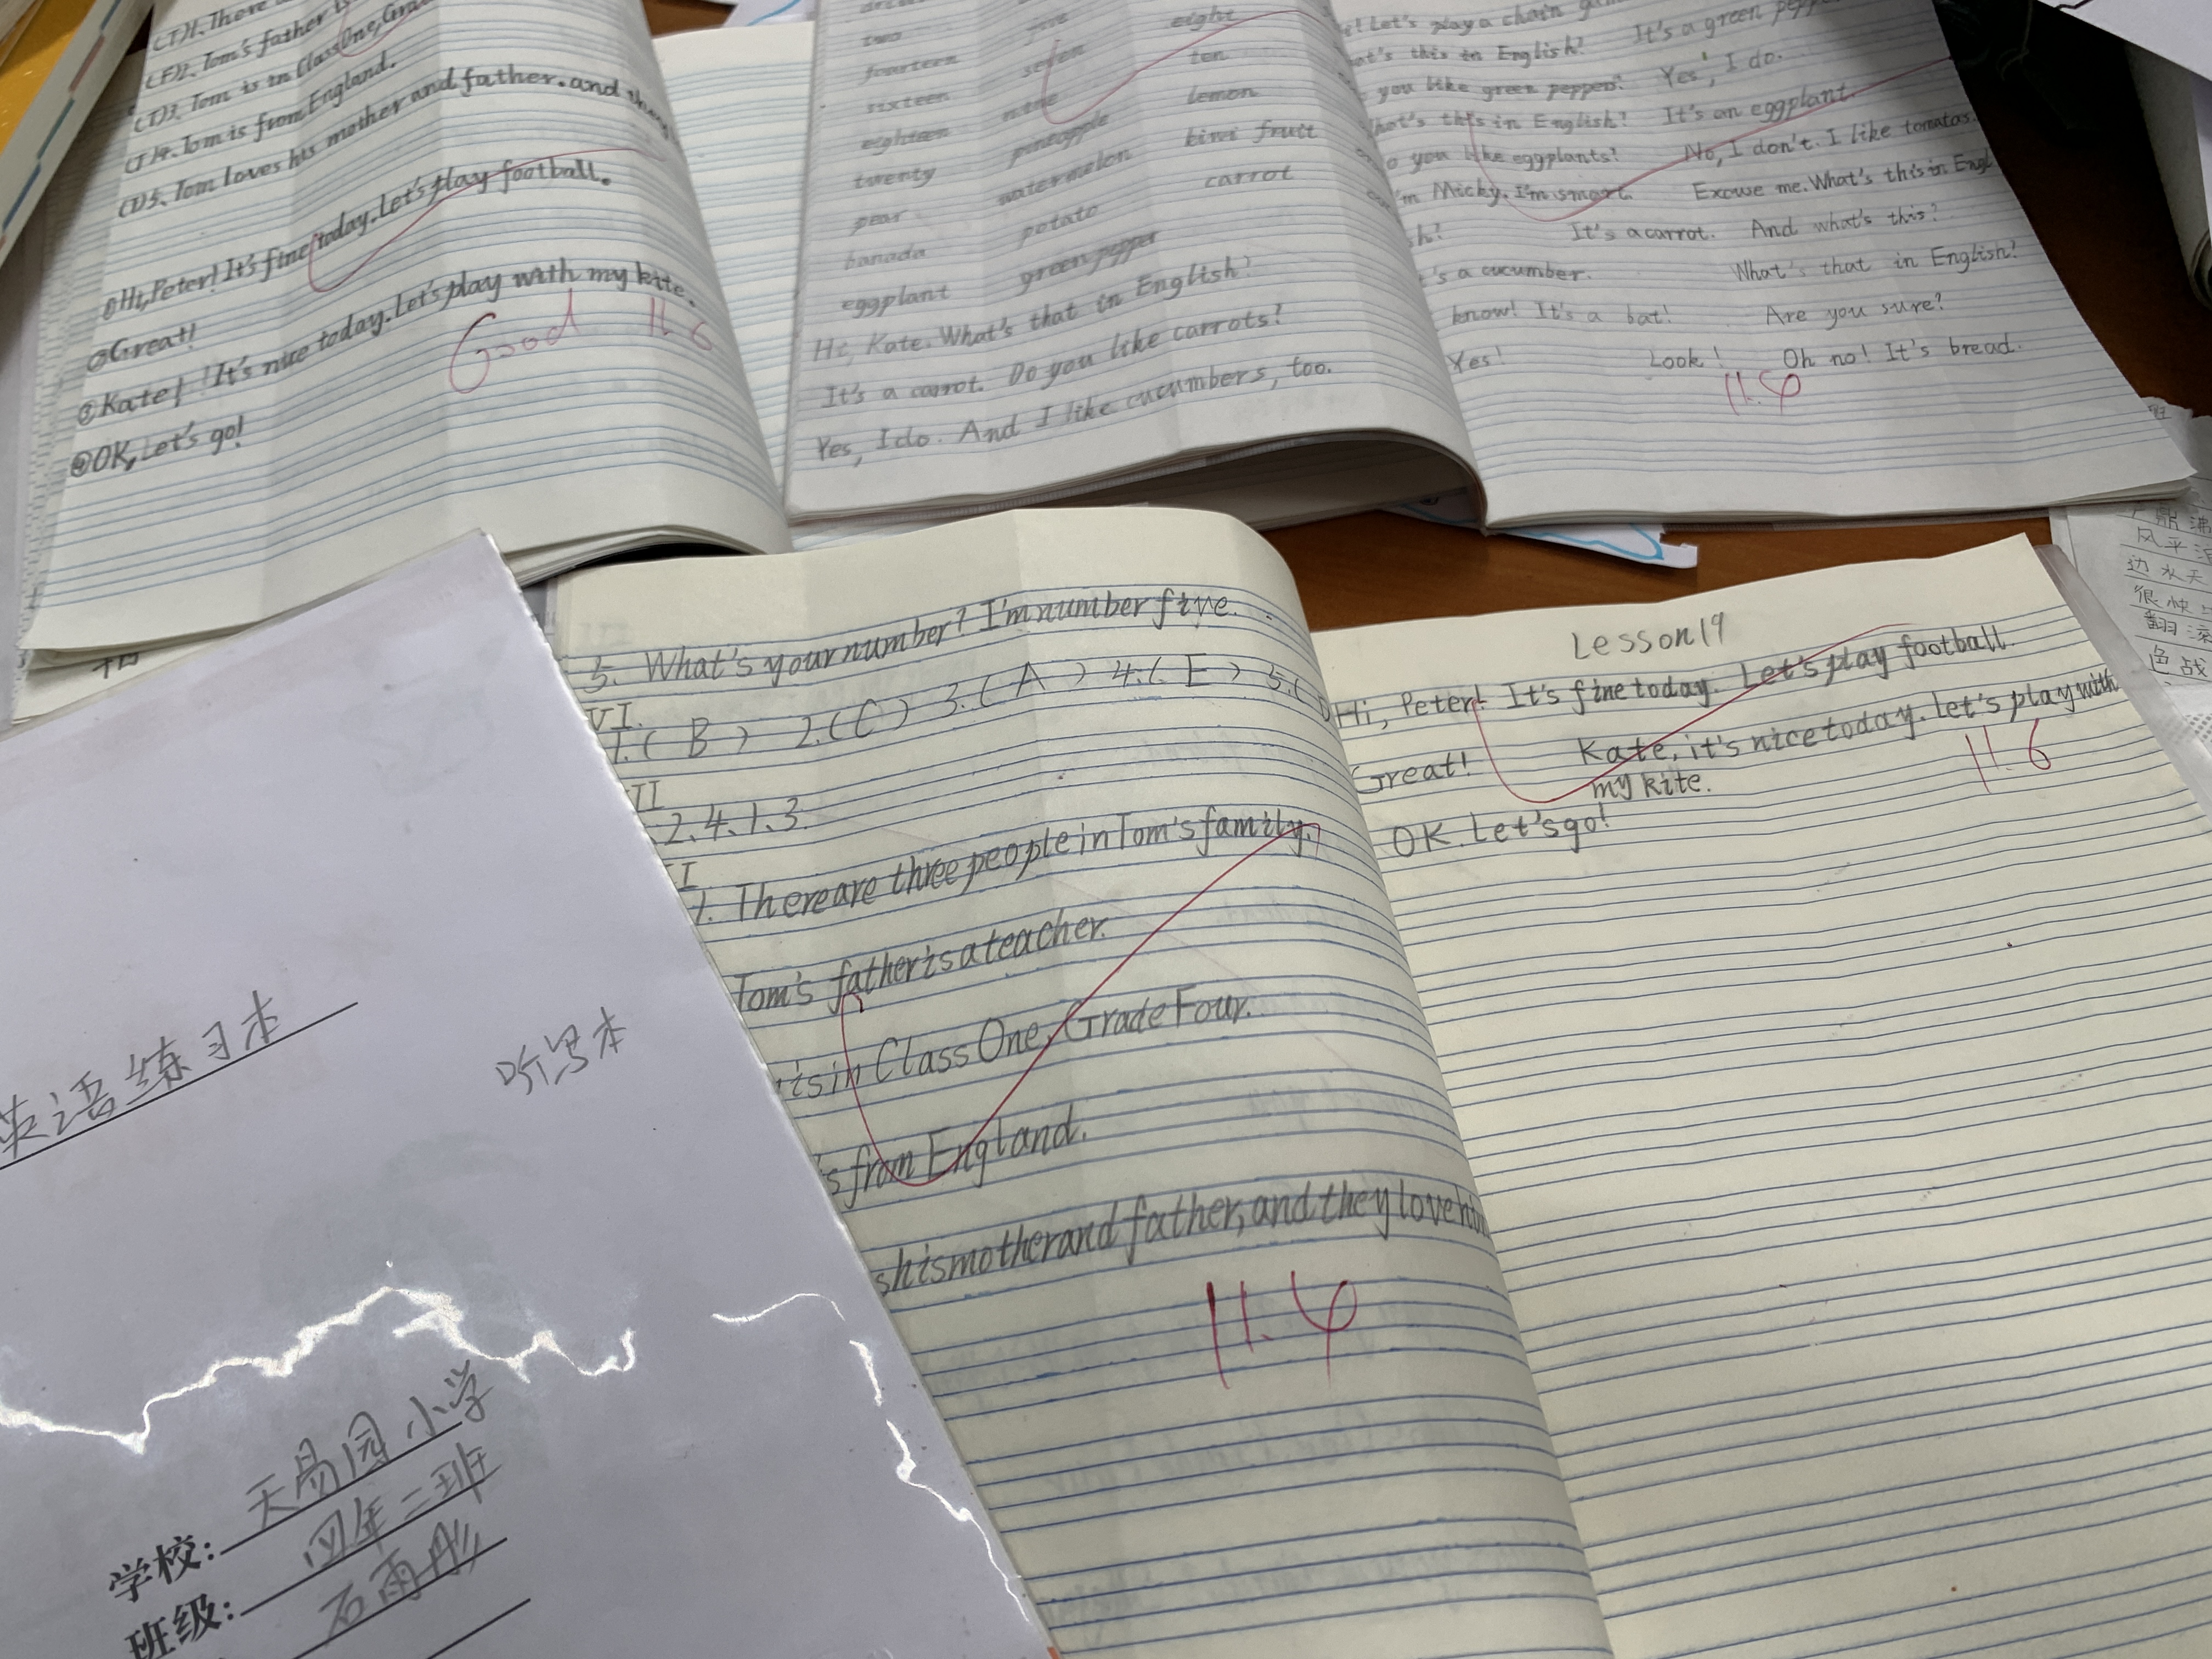 (T)1. There
(F)2. Tom's father is
(T)3. Tom is in Class One, Gra
(T)4. Tom is from England.
(T)5. Tom loves his mother and father. and they
①Hi, Peter! It's fine today. Let's play football.
②Great!
③Kate! It's nice today. Let's play with my kite.
④OK, Let's go!
Good 11.6
two five eight
fourteen seven ten
sixteen nine lemon
eighteen pineapple kiwi fruit
twenty watermelon carrot
pear potato
banada green pepper
eggplant
Hi, Kate. What's that in English?
It's a carrot. Do you like carrots?
Yes, I do. And I like cucumbers, too.
! Let's play a chain
at's this in English? It's a green pepper
you like green pepper? Yes, I do.
hat's this in English? It's an eggplant.
o you like eggplants? No, I don't. I like tomatas.
'm Micky. I'm smart. Excuse me. What's this in Engl
sh? It's a carrot. And what's this?
t's a cucumber. What's that in English?
know! It's a bat! Are you sure?
Yes! Look! Oh no! It's bread.
11.4
5. What's your number? I'm number five.
VI.
1.( B ) 2.( C ) 3.( A ) 4.( E ) 5.( D
VII
2.4.1.3.
I
1. There are three people in Tom's family.
Tom's father is a teacher.
is in Class One, Grade Four.
s from England.
s his mother and father, and they love him
11.4
Lesson 19
Hi, Peter! It's fine today. Let's play football.
Great! Kate, it's nice today. Let's play with
my kite.
OK. Let's go!
11.6
英语练习本
听写本
学校: 天易园小学
班级: 四年二班
石雨彤
风平
边水天
很快
翻滚
色战